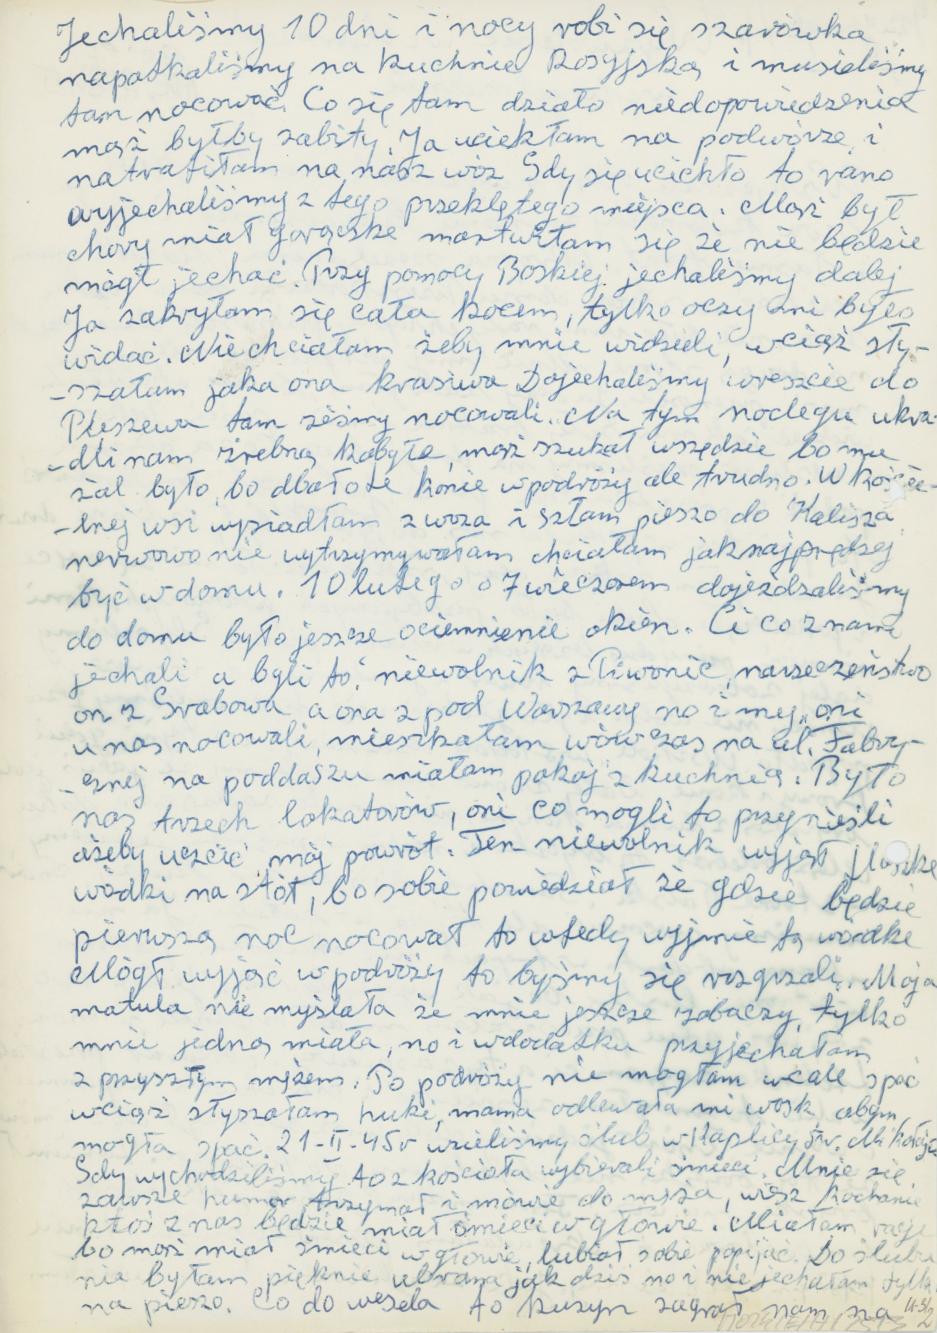 Jechaliśmy 10 dni i nocy robi się szarówka
napatkaliśmy na kuchnie Rosyjską i musieliśmy
tam nocować. Co się tam działo niedopowiedzenia
mąż byłby zabity. Ja uciekłam na podwórze i
natrafiłam na nasz wóz Gdy się ucichło to rano
wyjechaliśmy z tego przeklętego miejsca. Mąż był
chory miał gorączke martwiłam się że nie będzie
mógł jechać. Przy pomocy Boskiej jechaliśmy dalej
Ja zakryłam się cała kocem, tylko oczy mi było
widać. Nie chciałam żeby mnie widzieli, wciąż sły-
-szałam jaka ona krasiwa Dojechaliśmy wreszcie do
Pleszewa tam żeśmy nocowali. Na tym noclegu ukra-
-dli nam źrebną kobyłe, mąż szukał wszędzie bo mu
żal było, bo dbał o te konie w podróży ale trudno. W
-lnej wsi wysiadłam z woza i szłam pieszo do Kalisza
nerwowo nie wytrzymywałam chciałam jaknajprędzej
być w domu. 10 lutego o 7 wieczorem dojeżdzaliśmy
do domu było jeszcze ociemnienie okien. Ci co z nami
jechali a byli to, niewolnik z Piwonic, narzeczeństwo
on z Grabowa a ona z pod Warszawy no i my, oni
u nas nocowali, mieszkałam wówczas na ul. Fabry-
-cznej na poddaszu miałam pokój z kuchnią. Było
nas trzech lokatorów, oni co mogli to przynieśli
ażeby uczcić mój powrót. Ten niewolnik wyjął flaszke
wódki na stół, bo sobie powiedział że gdzie będzie
pierwszą noc nocował to wtedy wyjmie tą wódke
Mógł wyjąć w podróży to byśmy się rozgrzali. Moja
matula nie myślała że mnie jeszcze zobaczy, tylko
mnie jedną miała, no i w dodatku przyjechałam
z przyszłym mężem. Po podróży nie mogłam wcale spać
wciąż słyszałam huki, mama odlewała mi wosk abym
mogła spać. 21-II-45r wzieliśmy ślub w Kaplicy Św. Mikołaja
Gdy wychodziliśmy to z kościoła wybierali śmieci. Mnie się
zawsze humor trzymał i mówie do męża, wisz kochanie
ktoś z nas będzie miał śmieci w głowie. Miałam racje
bo mąż miał śmieci w głowie, lubiał sobie popijać. Do ślubu
nie byłam pięknie ubrana jak dziś no i nie jechałam tylko
na pieszo. Co do wesela to kuzyn zagrał nam na